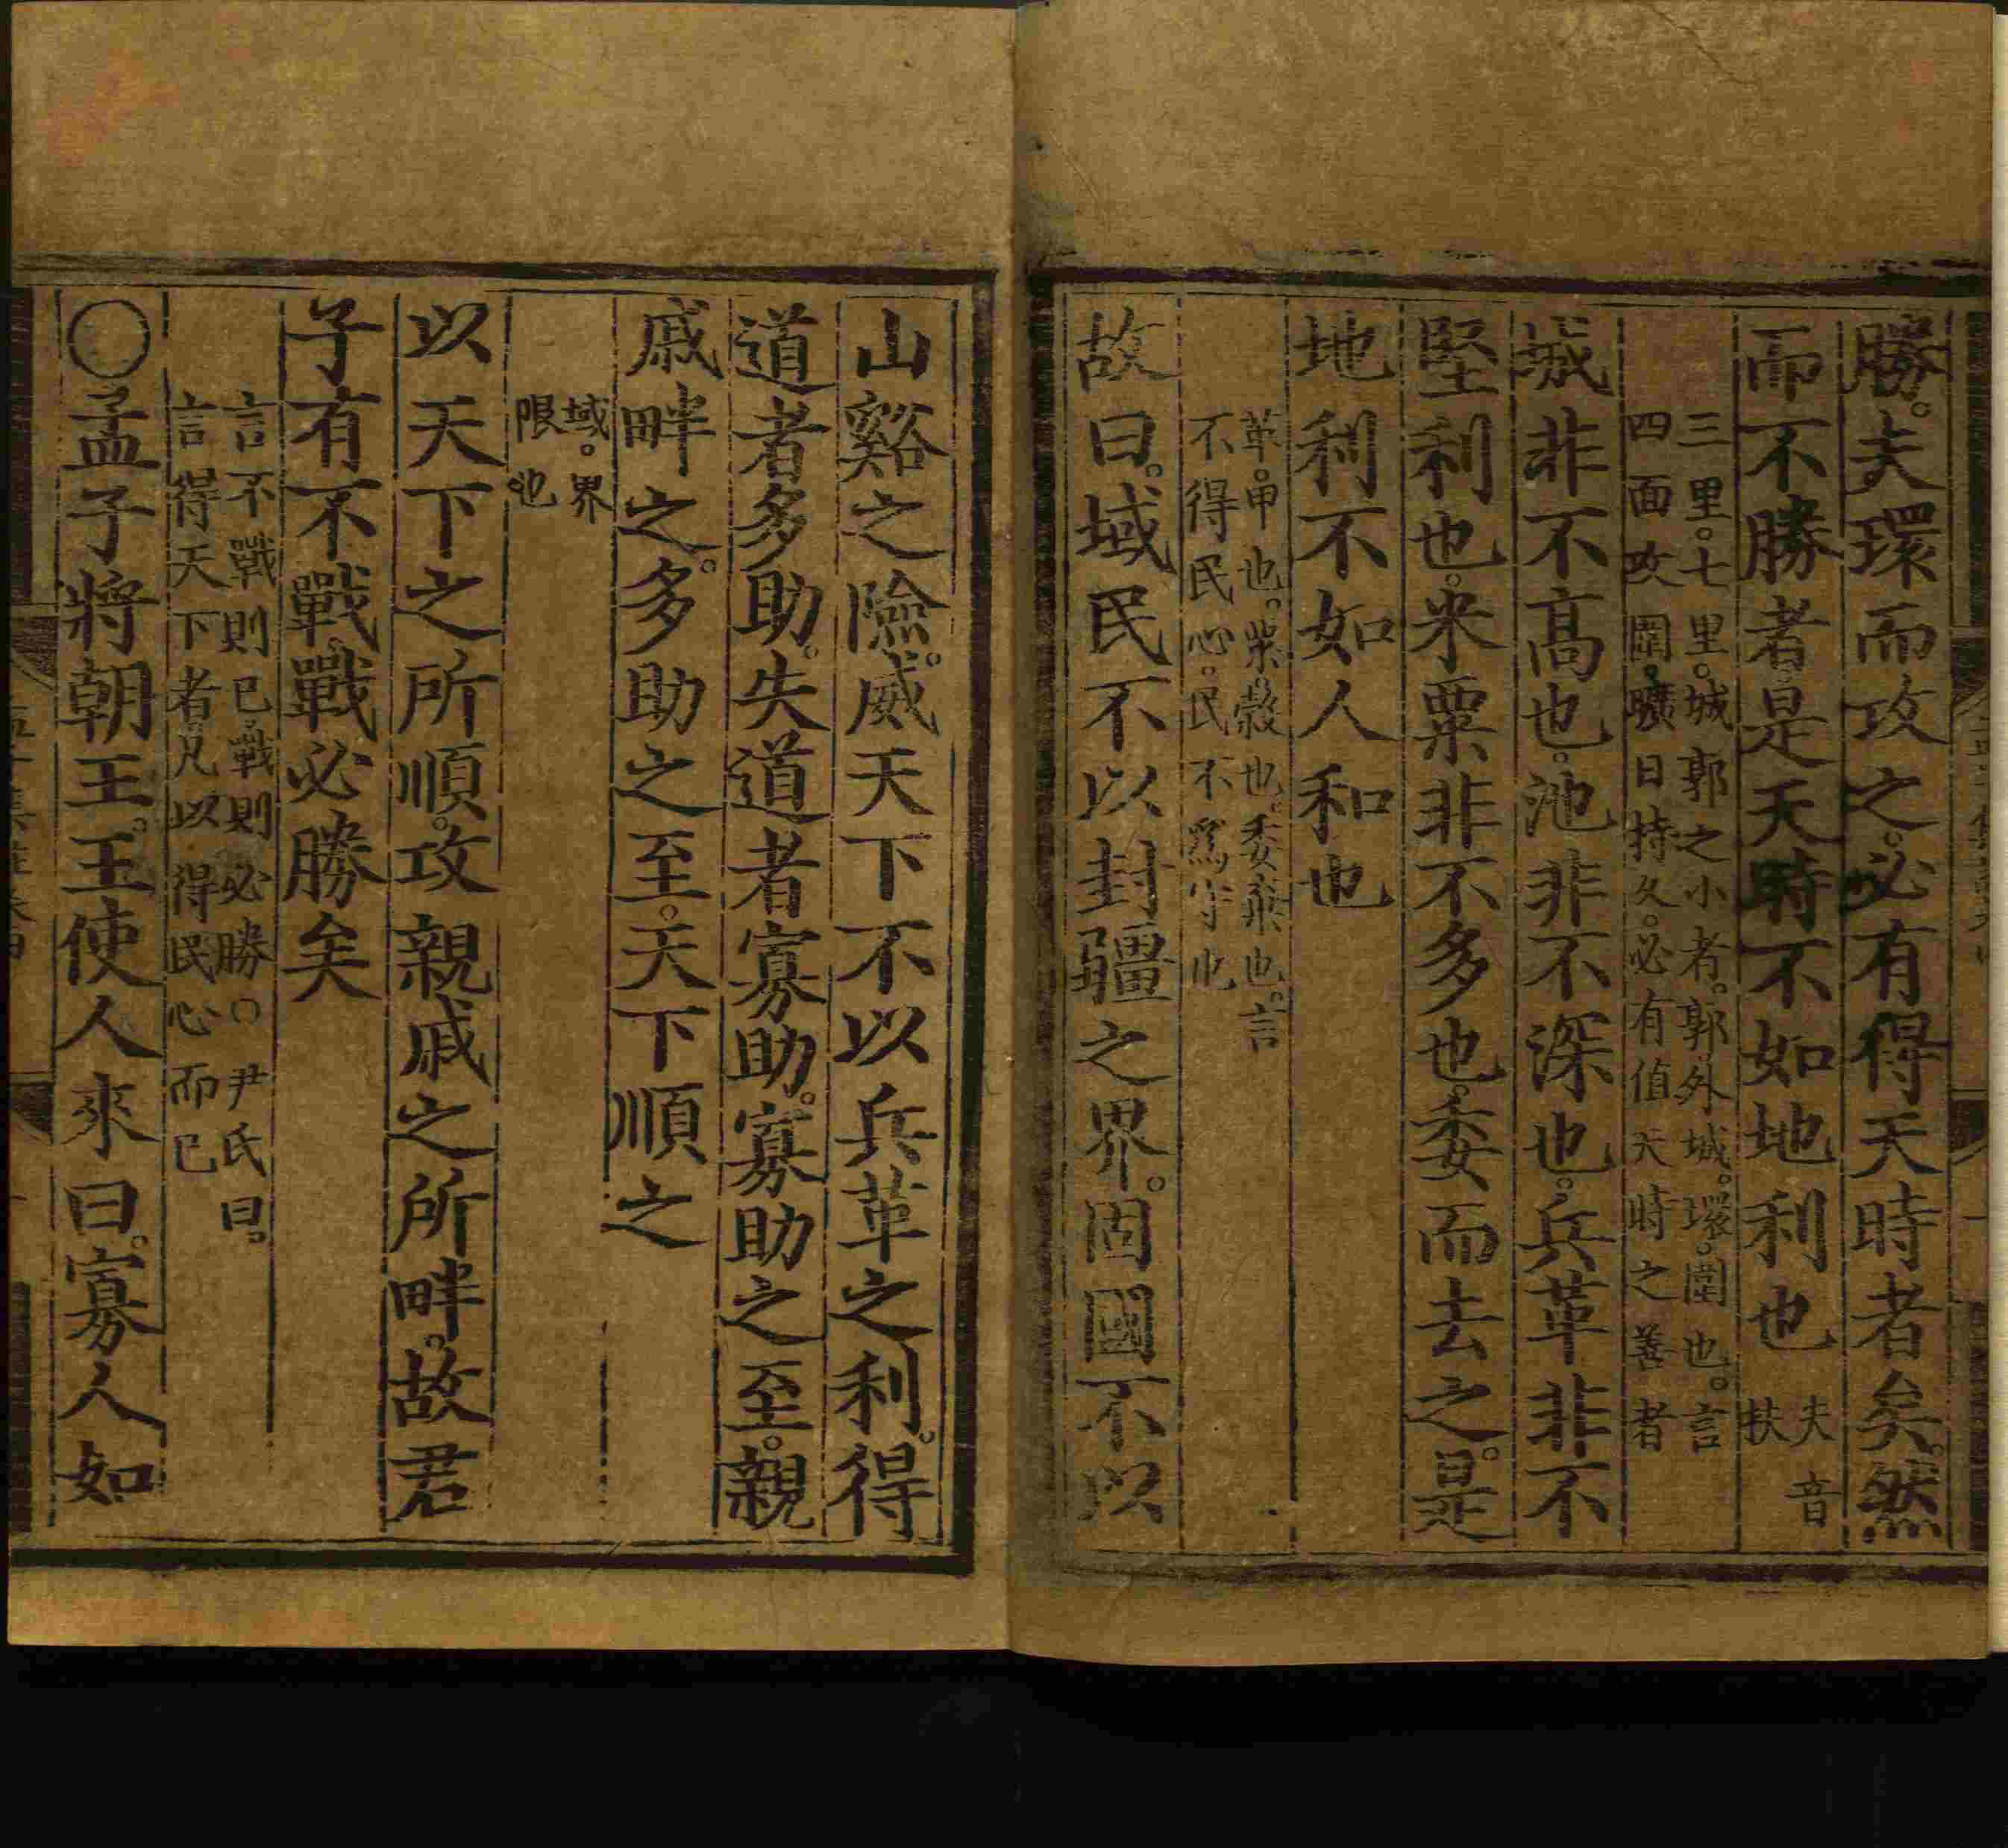 勝。夫環而攻之。必有得天時者矣。然
而不勝者是天時不如地利也夫音扶
三里。七里。城郭之小者。郭。外城。環。圍也。言
四面攻圍。曠日持久。必有値天時之善者
城非不高也。池非不深也。兵革非不
堅利也。米粟非不多也。委而去之。是
地利不如人和也
革。甲也。粟。穀也。委。棄也。言
不得民心。民不爲守也
故曰。域民不以封疆之界。固國不以
山谿之險。威天下不以兵革之利。得
道者多助。失道者寡助。寡助之至。親
戚畔之。多助之至。天下順之
域。界
限也
以天下之所順。攻親戚之所畔。故君
子有不戰。戰必勝矣
言不戰則已。戰則必勝○尹氏曰。
言得天下者。凡以得民心而已
○孟子將朝王。王使人來曰。寡人如